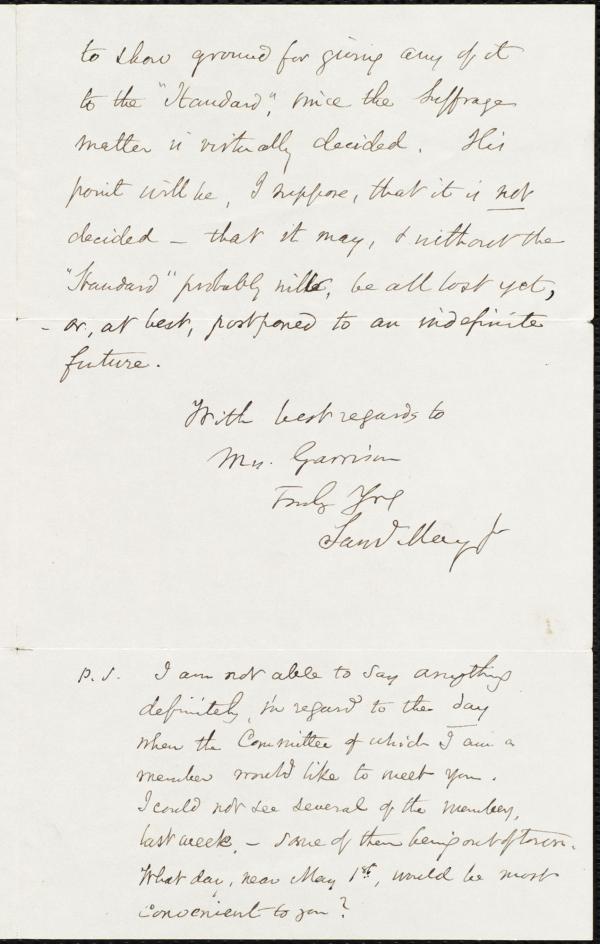 to show ground for giving any of it
to the "Standard", since the Suffrage
matter is virtually decided. His
point will be, I suppose, that it is not
decided – that it may, & without the
"Standard" probably will, be all lost yet,
– or, at best, postponed to an indefinite
future.
With best regards to
Mrs. Garrison
Truly Yrs
Saml May Jr
P.S. I am not able to say anything
definitely, in regard to the day
when the Committee of which I am a
member would like to meet you.
I could not see several of the members,
last week, – some of them being out of town.
What day, near May 1st, would be most
convenient to you?